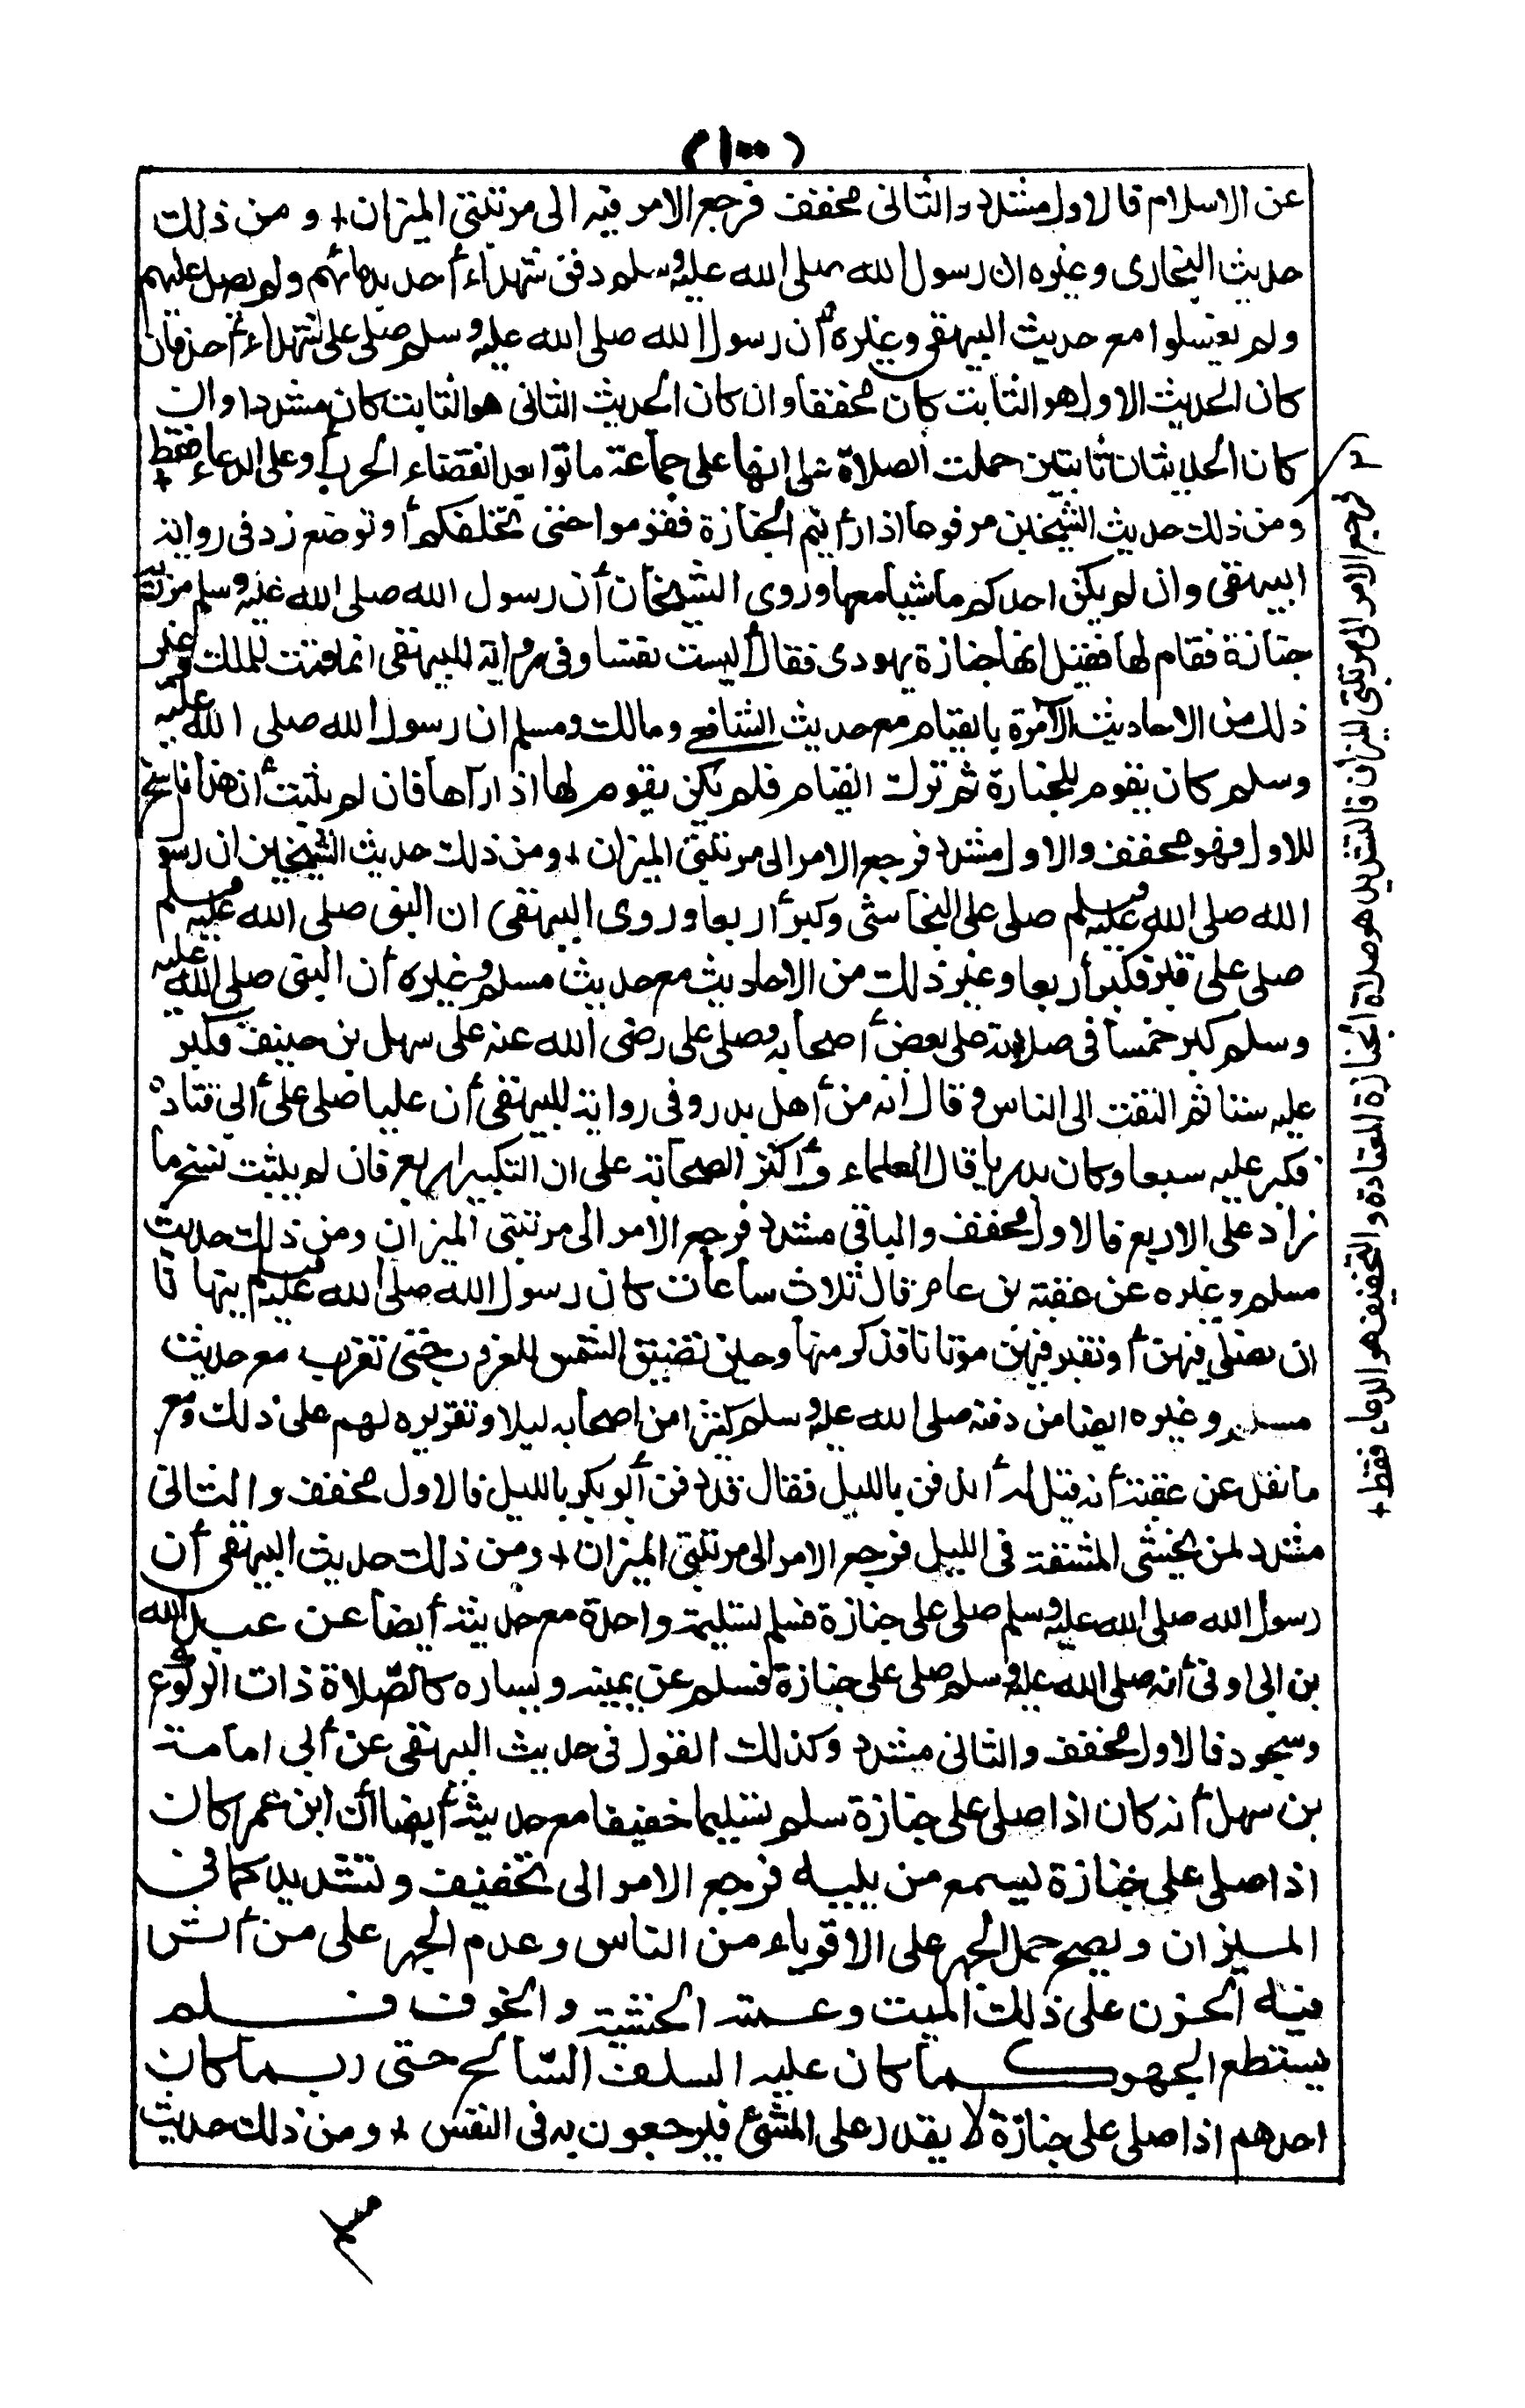 (١٠٠)
عن الاسلام فالاول مشدد والثانى مخفف فرجع الامر فيه الى مرتبتى الميزان + و من ذلك
حديث البخارى وغيره ان رسول الله صلى الله عليه وسلم دفن شهداء أحد بدمائهم ولم يصل عليهم
ولم يغسلوا مع حديث البيهقى وغيره أن رسول الله صلى الله عليه وسلم صلى على شهداء أحد فان
كان الحديث الاول هو الثابت كان مخففا وان كان الحديث الثانى هو الثابت كان مشددا وان
كان الحديثان ثابتين حملت الصلاة على انها على جماعة ماتوا بعد انقضاء الحرب أو على الدعاء فقط +
ومن ذلك حديث الشيخين مرفوعا اذا رأيتم الجنازة فقوموا حتى تخلفكم أو توضع زد فى رواية
البيهقى وان لم يكن احدكم ماشيا معها وروى الشيخان أن رسول الله صلى الله عليه وسلم مرت به
جنازة فقام لها فقيل انها جنازة يهودى فقال أليست نفسا وفى رواية للبيهقى انما قمت للملك وغير
ذلك من الاحاديث الآمرة بالقيام مع حديث الشافعى ومالك ومسلم ان رسول الله صلى الله عليه
وسلم كان يقوم للجنازة ثم ترك القيام فلم يكن يقوم لها اذا رآها فان لم يثبت أن هذا ناسخ
للاول فهو مخفف والاول مشدد فرجع الامر الى مرتبتى الميزان + ومن ذلك حديث الشيخين ان رسو
الله صلى الله عليه وسلم صلى على النجاشى وكبر أربعا وروى البيهقى ان النبى صلى الله عليه وسلم
صلى على قبر فكبر أربعا وغير ذلك من الاحاديث مع حديث مسلم وغيره أن النبى صلى الله عليه
وسلم كبر خمسا فى صلاته على بعض أصحابه وصلى على رضى الله عنه على سهل بن حنيف فكبر
عليه ستا ثم التفت الى الناس وقال انه من أهل بدر وفى رواية للبيهقى أن عليا صلى على أبى قتادة
فكبر عليه سبعا وكان بدريا قال العلماء وأكثر الصحابة على ان التكبير اربع فان لم يثبت نسخ ما
زاد على الاربع فالاول مخفف والباقى مشدد فرجع الامر الى مرتبتى الميزان ومن ذلك حديث
مسلم وغيره عن عقبة بن عامر قال ثلاث ساعات كان رسول الله صلى الله عليه وسلم ينها نا
ان نصلى فيهن أو نقبر فيهن موتانا فذكر منها وحين تضيق الشمس للغروب حتى تغرب مع حديث
مسلم وغيره ايضا من دفنه صلى الله عليه وسلم كثيرا من اصحابه ليلا وتقريره لهم على ذلك ومع
ما نقل عن عقبة أنه قيل له أيدفن بالليل فقال قد دفن أبو بكر بالليل فالاول مخفف والثانى
مشدد لمن يخشى المشقة فى الليل فرجع الامر الى مرتبتى الميزان + ومن ذلك حديث البيهقى أن
رسول الله صلى الله عليه وسلم صلى على جنازة فسلم تسليمة واحدة مع حديثه أيضا عن عبد الله
بن ابى اوفى أنه صلى الله عليه وسلم صلى على جنازة فسلم عن يمينه ويساره كالصلاة ذات الركوع
وسجود فالاول مخفف والثانى مشدد وكذلك القول فى حديث البيهقى عن أبى امامة
بن سهل أنه كان اذا صلى على جنازة سلم تسليما خفيفا مع حديثه أيضا أن ابن عمر كان
اذا صلى على جنازة يسمع من يليه فرجع الامر الى تخفيف وتشديد كما فى
الميزان ويصح حمل الجهر على الاقوياء من الناس وعدم الجهر على من أثر
فيه الحزن على ذلك الميت وعمته الخشية والخوف فلم
يستطع الجهر كما كان عليه السلف الصالح حتى ربما كان
احدهم اذا صلى على جنازة لا يقدر على المشى فيرجعون به فى النعش + ومن ذلك حديث
٢ فرجع الامر الى مرتبتى الميزان فالتشديد هو صلاة الجنازة المعتادة والتخفيف هو الدعاء فقط +